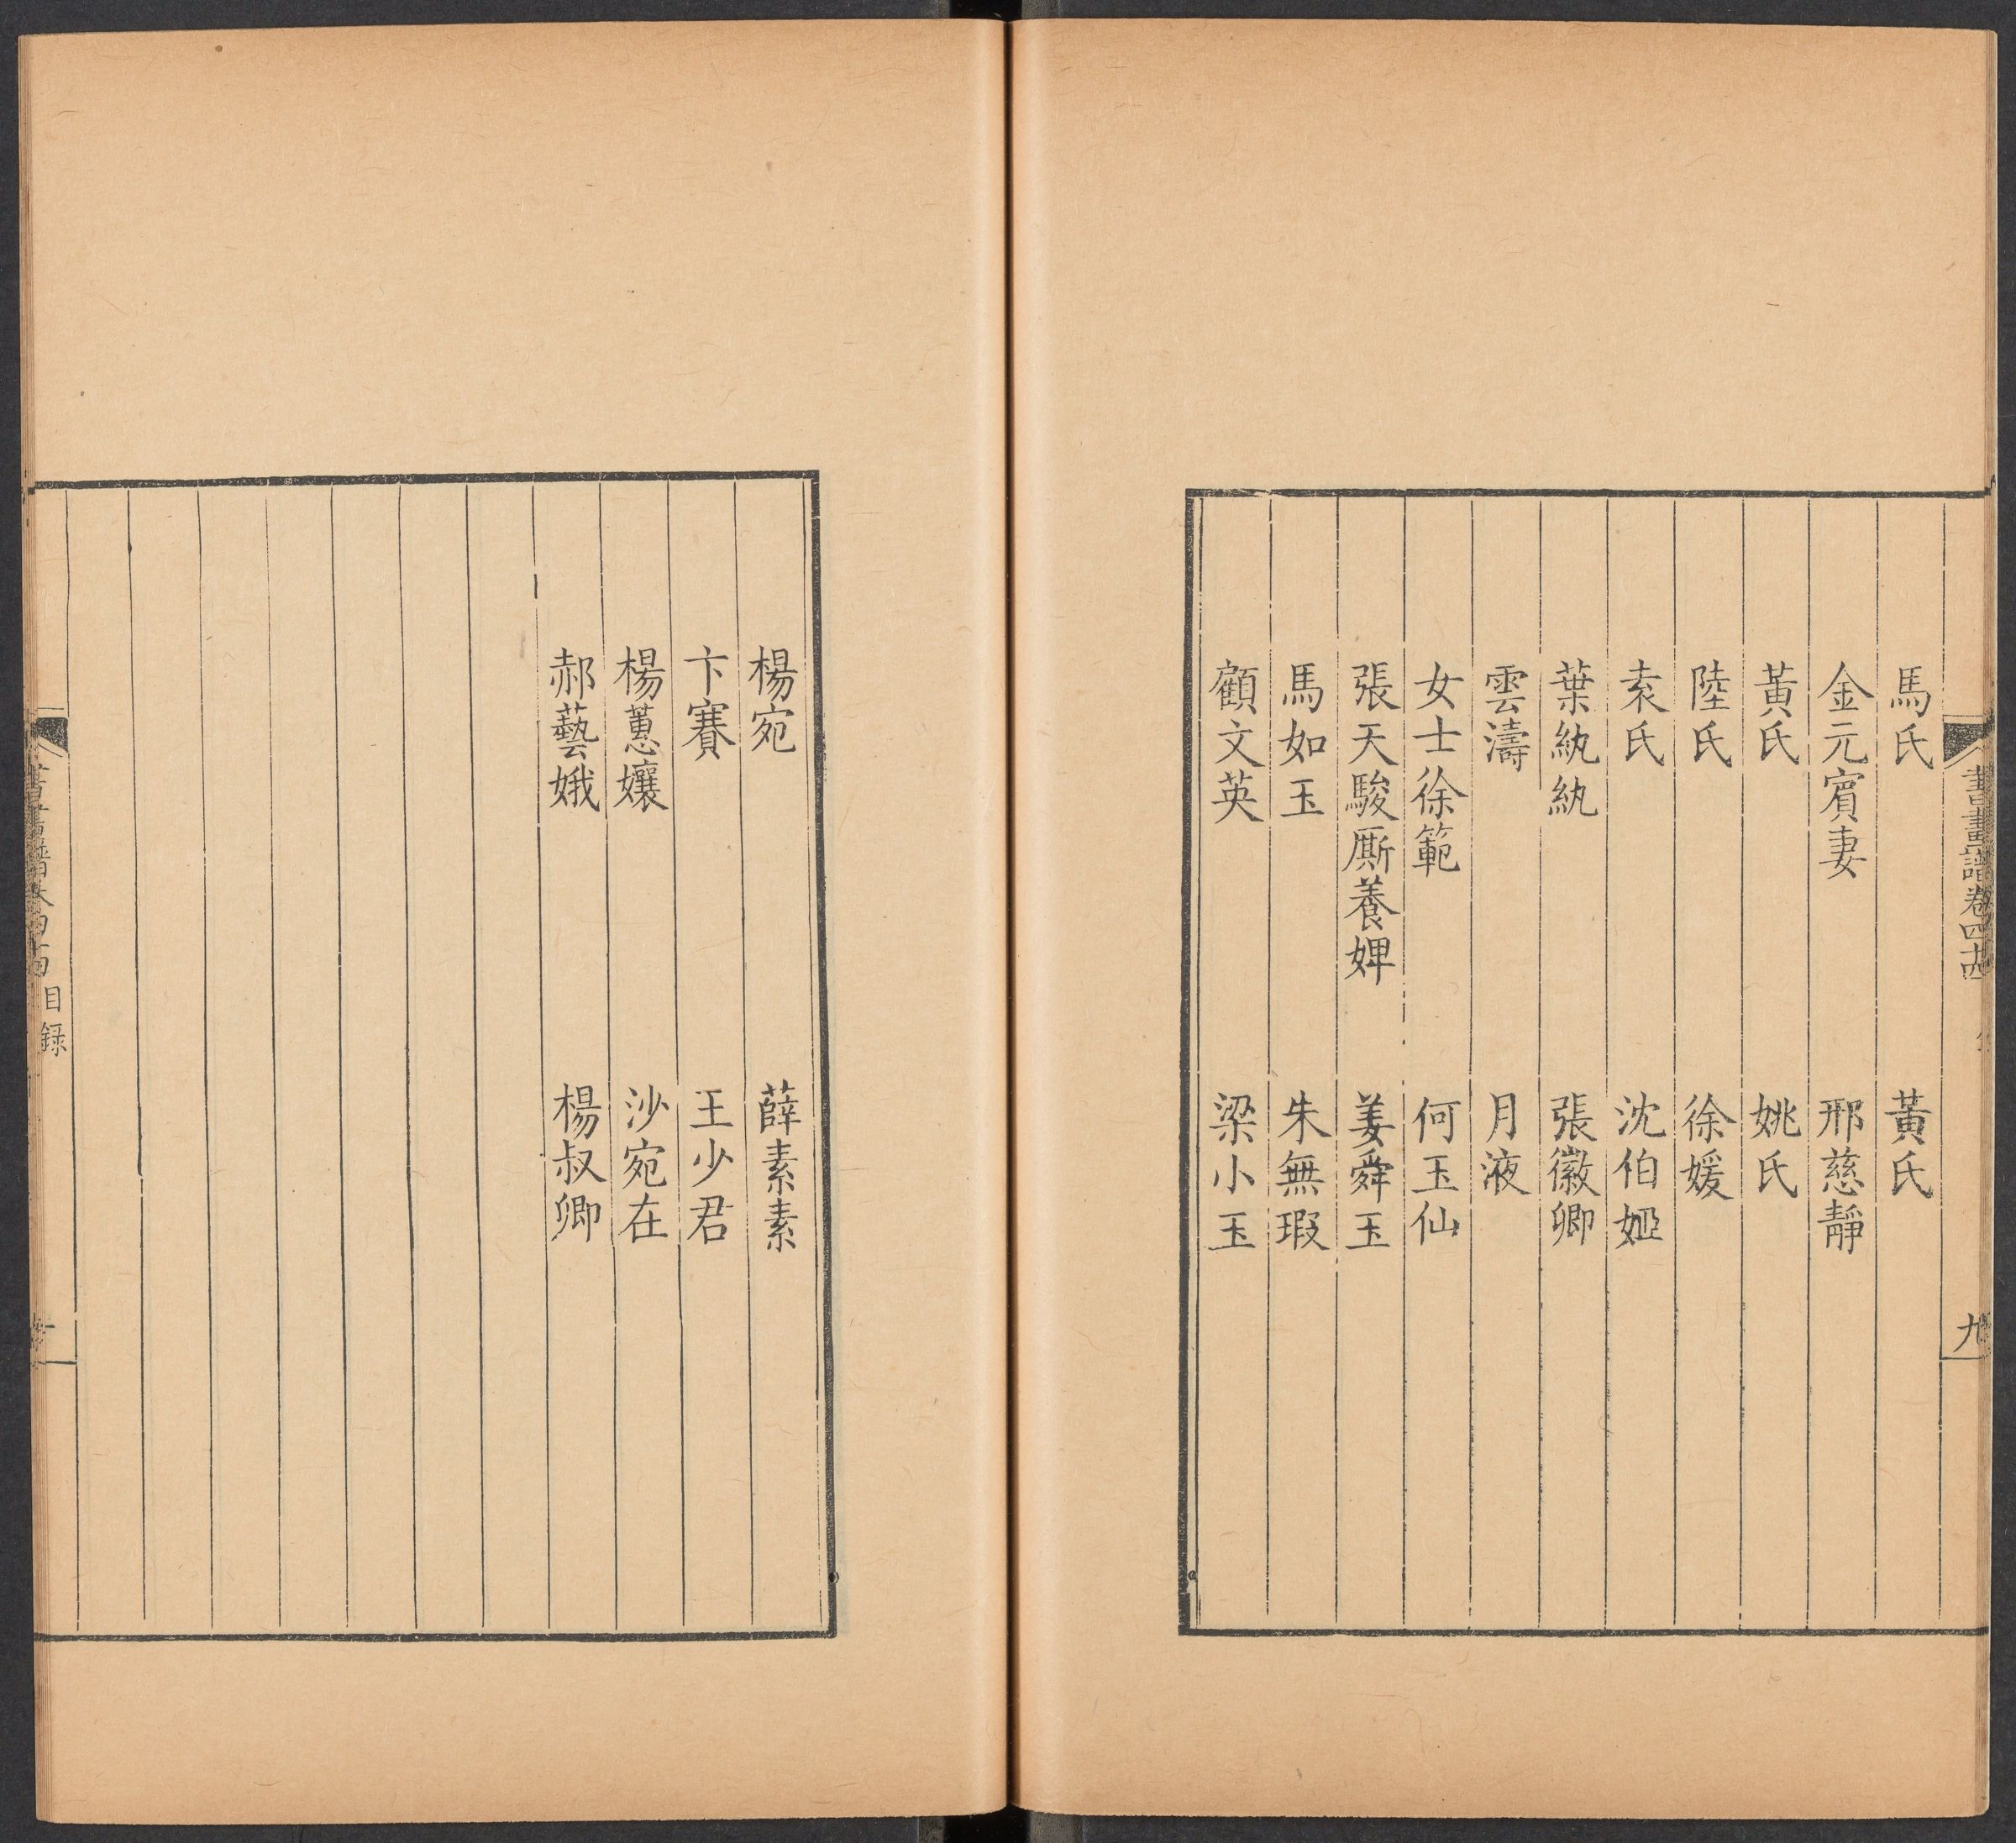 書畫譜卷四十四
九
馬氏 黃氏
金元賓妻 邢慈靜
黃氏 姚氏
陸氏 徐媛
袁氏 沈伯姬
葉紈紈 張徽卿
雲濤 月液
女士徐範 何玉仙
張天駿廝養婢 姜舜玉
馬如玉 朱無瑕
顧文英 梁小玉
楊宛 薛素素
卞賽 王少君
楊蕙孃 沙宛在
郝藝娥 楊叔卿
目録